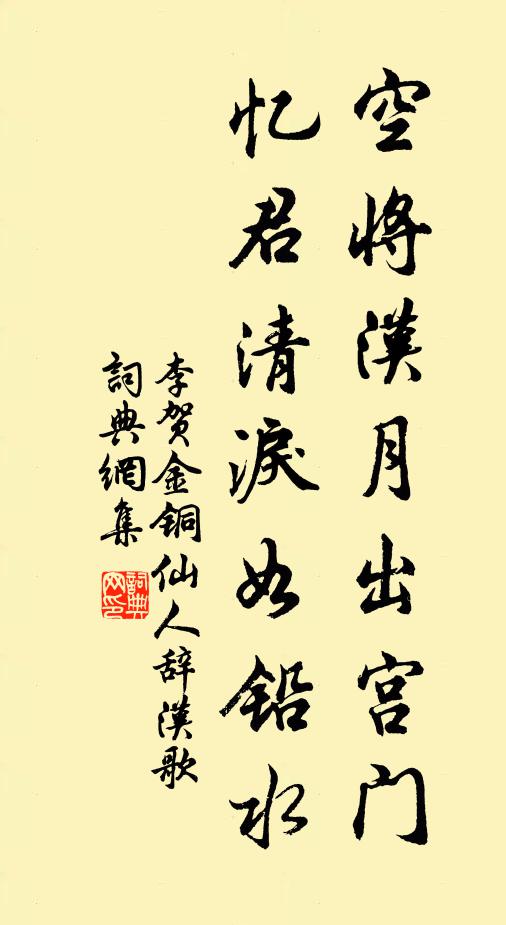 空將漢月出宫门
忆君清淚如鉛水
李贺金铜仙人辞漢歌
詞典網集
詞典网印